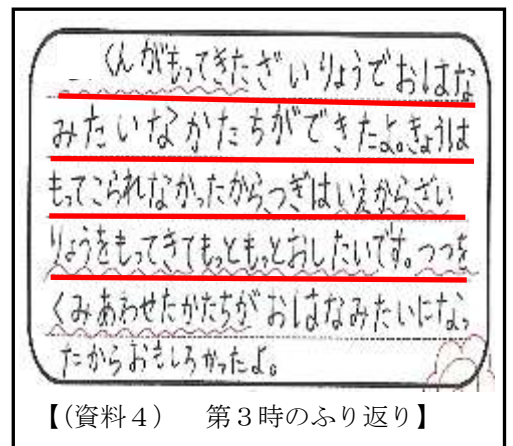 くんがもってきたざいりょうでおはな
みたいなかたちができたよ。きょうは
もってこられなかったからつぎはいえからざい
りょうをもってきてもっともっとおしたいです。つつを
くみあわせたかたちがおはなみたいになっ
たからおもしろかったよ。
【(資料4) 第3時のふり返り】